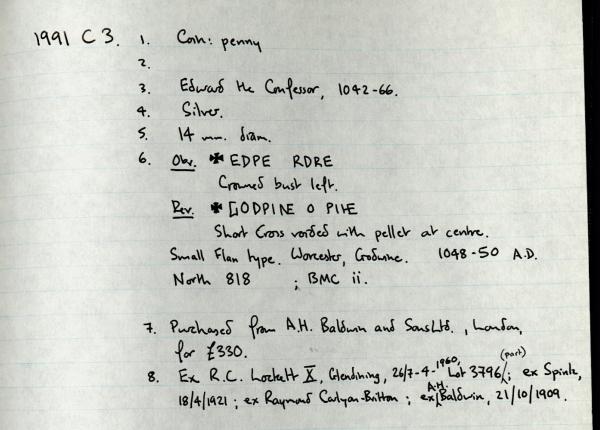 1991 C 3. 1. Coin: penny
2.
3. Edward the Confessor, 1042-66.
4. Silver.
5. 14 mm. diam.
6. Obv. ✠ EDPE RDRE
Crowned bust left.
Rev. ✠ GODPINE O PIHE
Short Cross voided with pellet at centre.
Small Flan type. Worcester, Godwine. 1048-50 A.D.
North 818 ; BMC ii.
7. Purchased from A.H. Baldwin and Sons Ltd., London,
for £330.
8. Ex R.C. Lockett X, Glendining, 26/7-4-1960, Lot 3796 (part); ex Spink,
18/4/1921; ex Raymond Carlyon-Britton; ex A.H. Baldwin, 21/10/1909.